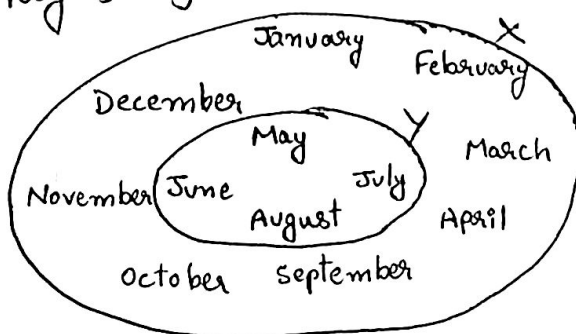 X
January
Febaruary
December
Y
May
March
November June July
August April
October September